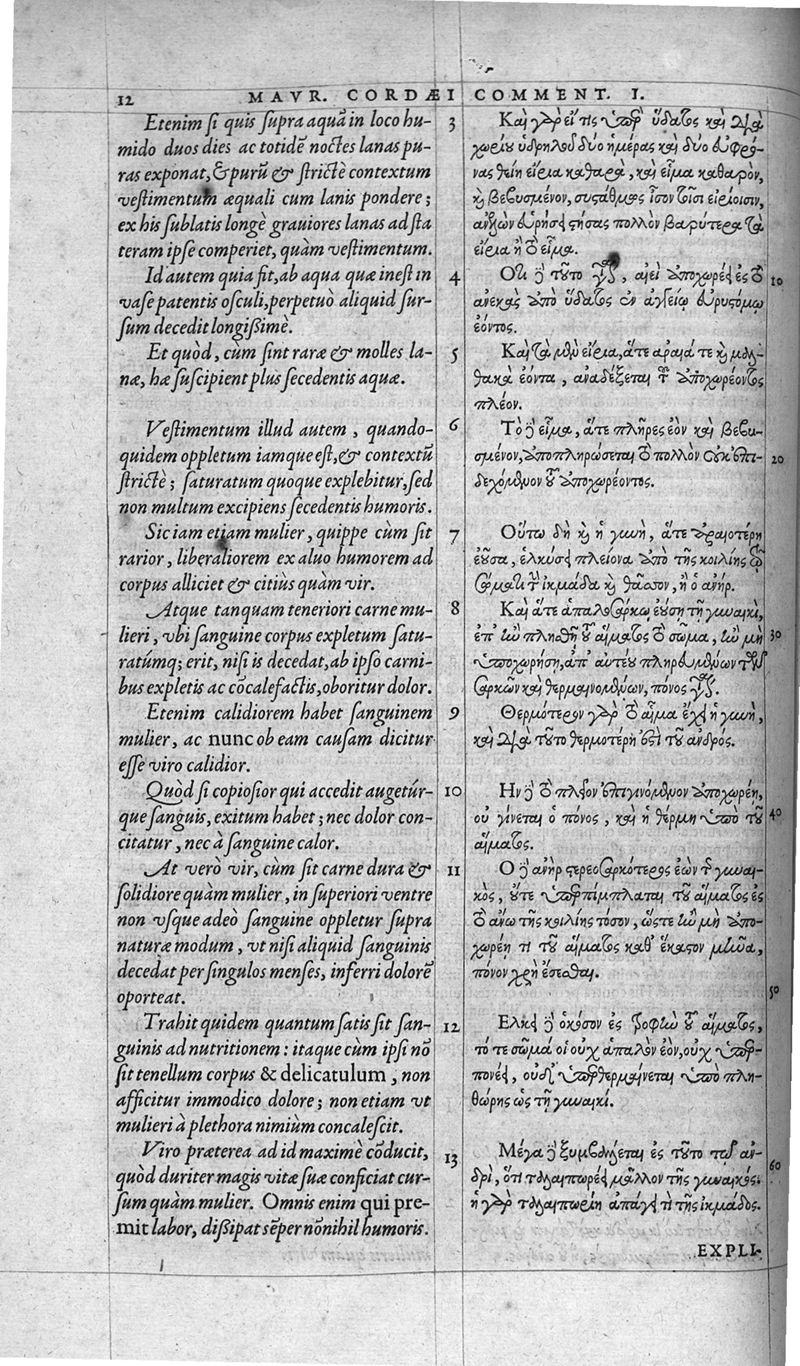 12 MAVR. CORDÆI COMMENT. I.
Etenim si quis supra aquã in loco hu-
mido duos dies ac totidẽ noctes lanas pu-
ras exponat, & purũ & strictè contextum
vestimentum æquali cum lanis pondere;
ex his sublatis longè grauiores lanas ad sta
teram ipse comperiet, quàm vestimentum.
Id autem quia fit, ab aqua quæ inest in
vase patentis osculi, perpetuò aliquid sur-
sum decedit longißimè.
Et quòd, cùm sint raræ & molles la-
næ, hæ suscipient plus secedentis aquæ.
Vestimentum illud autem, quando-
quidem oppletum iamque est, & contextũ
strictè; saturatum quoque explebitur, sed
non multum excipiens secedentis humoris.
Sic iam etiam mulier, quippe cùm sit
rarior, liberaliorem ex aluo humorem ad
corpus alliciet & citiùs quàm vir.
Atque tanquam teneriori carne mu-
lieri, vbi sanguine corpus expletum satu-
ratúmq; erit, nisi is decedat, ab ipso carni-
bus expletis ac cõcalefactis, oboritur dolor.
Etenim calidiorem habet sanguinem
mulier, ac nunc ob eam causam dicitur
esse viro calidior.
Quòd si copiosior qui accedit augetúr-
que sanguis, exitum habet; nec dolor con-
citatur, nec à sanguine calor.
At verò vir, cùm sit carne dura &
solidiore quàm mulier, in superiori ventre
non vsque adeò sanguine oppletur supra
naturæ modum, vt nisi aliquid sanguinis
decedat per singulos menses, inferri dolorẽ
oporteat.
Trahit quidem quantum satis sit san-
guinis ad nutritionem: itaque cùm ipsi nõ
sit tenellum corpus & delicatulum, non
afficitur immodico dolore; non etiam vt
mulieri à plethora nimiùm concalescit.
Viro præterea ad id maximè cõducit,
quòd duriter magis vitæ suæ conficiat cur-
sum quàm mulier. Omnis enim qui pre-
mit labor, dißipat sẽper nõnihil humoris.
3 Καὶ γὰρ εἴ τις ὑπὲρ ὕδατος καὶ διὰ
χωρίου ὑδρηλοῦ δύο ἡμέρας καὶ δύο εὐφρό-
νας θείη εἴρια καθαρὰ, καὶ εἷμα καθαρὸν,
καὶ βεβυσμένον, συστάθμως ἶσον τοῖσι εἰρίοισιν,
ἀνελὼν εὑρήσει στήσας πολλὸν βαρύτερα τὰ
εἴρια ἢ τὸ εἷμα.
4 Ὅτι δὲ τοῦτο γίνεται, αἰεὶ ἀποχωρέει ἐς τὸ 10
ἀνεκὰς ἀπὸ ὕδατος ἐν ἀγγείῳ εὐρυστόμῳ
ἐόντος.
5 Καὶ τὰ μὲν εἴρια, ἅτε ἀραιά τε καὶ μαλ-
θακὰ ἐόντα, ἀναδέξεται τοῦ ἀποχωρέοντος
πλέον.
6 Τὸ δὲ εἷμα, ἅτε πλῆρες ἐὸν καὶ βεβυ-
σμένον, ἀποπληρώσεται τὸ πολλὸν οὐκ ἐπι- 20
δεχόμενον τοῦ ἀποχωρέοντος.
7 Οὕτω δὴ καὶ ἡ γυνὴ, ἅτε ἀραιοτέρη
ἐοῦσα, ἑλκύσει πλείονα ἀπὸ τῆς κοιλίης τῷ
σώματι τὴν ἰκμάδα καὶ θᾶσσον, ἢ ὁ ἀνήρ.
8 Καὶ ἅτε ἁπαλοσάρκῳ ἐούσῃ τῇ γυναικὶ,
ἐπ' ἢν πλησθῇ τοῦ αἵματος τὸ σῶμα, ἢν μὴ 30
ὑποχωρήσῃ, ἀπ' αὐτέου πληρευμένων τῶν
σαρκῶν καὶ θερμαινομένων, πόνος γίνεται.
9 Θερμότερον γὰρ τὸ αἷμα ἔχει ἡ γυνὴ,
καὶ διὰ τοῦτο θερμοτέρη ἐστὶ τοῦ ἀνδρός.
10 Ἢν δὲ τὸ πλεῖον ἐπιγινόμενον ἀποχωρέῃ,
οὐ γίνεται ὁ πόνος, καὶ ἡ θέρμη ὑπὸ τοῦ 40
αἵματος.
11 Ὁ δὲ ἀνὴρ στερεοσαρκότερος ἐὼν τῆς γυναι-
κὸς, οὔτε ὑπερπίμπλαται τοῦ αἵματος ἐς
τὸ ἄνω τῆς κοιλίης τόσον, ὥστε ἢν μὴ ἀπο-
χωρέῃ τι τοῦ αἵματος καθ' ἕκαστον μῆνα,
πόνον χρὴ ἔσεσθαι. 50
12 Ἕλκει δὲ ὁκόσον ἐς τροφὴν τοῦ αἵματος,
τό τε σῶμά οἱ οὐχ ἁπαλὸν ἐὸν, οὐχ ὑπερ-
πονέει, οὐδ' ὑπερθερμαίνεται ὑπὸ πλη-
θώρης ὡς τῇ γυναικί.
13 Μέγα δὲ ξυμβάλλεται ἐς τοῦτο τῷ ἀν-
δρὶ, ὅτι ταλαιπωρέει μᾶλλον τῆς γυναικός. 60
ἡ γὰρ ταλαιπωρίη ἀπάγει τι τῆς ἰκμάδος.
EXPLI-